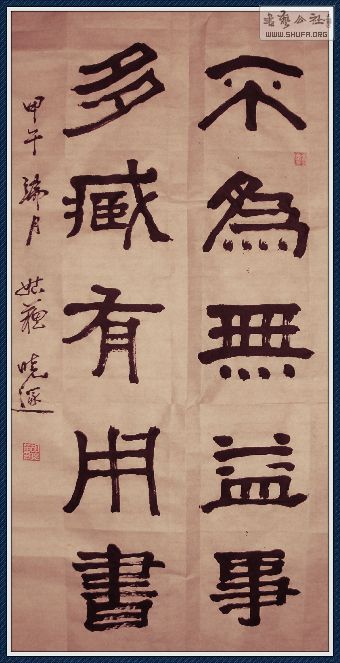 不為無益事
多臧有用書
甲午端月 姑蘇 曉遜
书艺公社
WWW.SHUFA.ORG